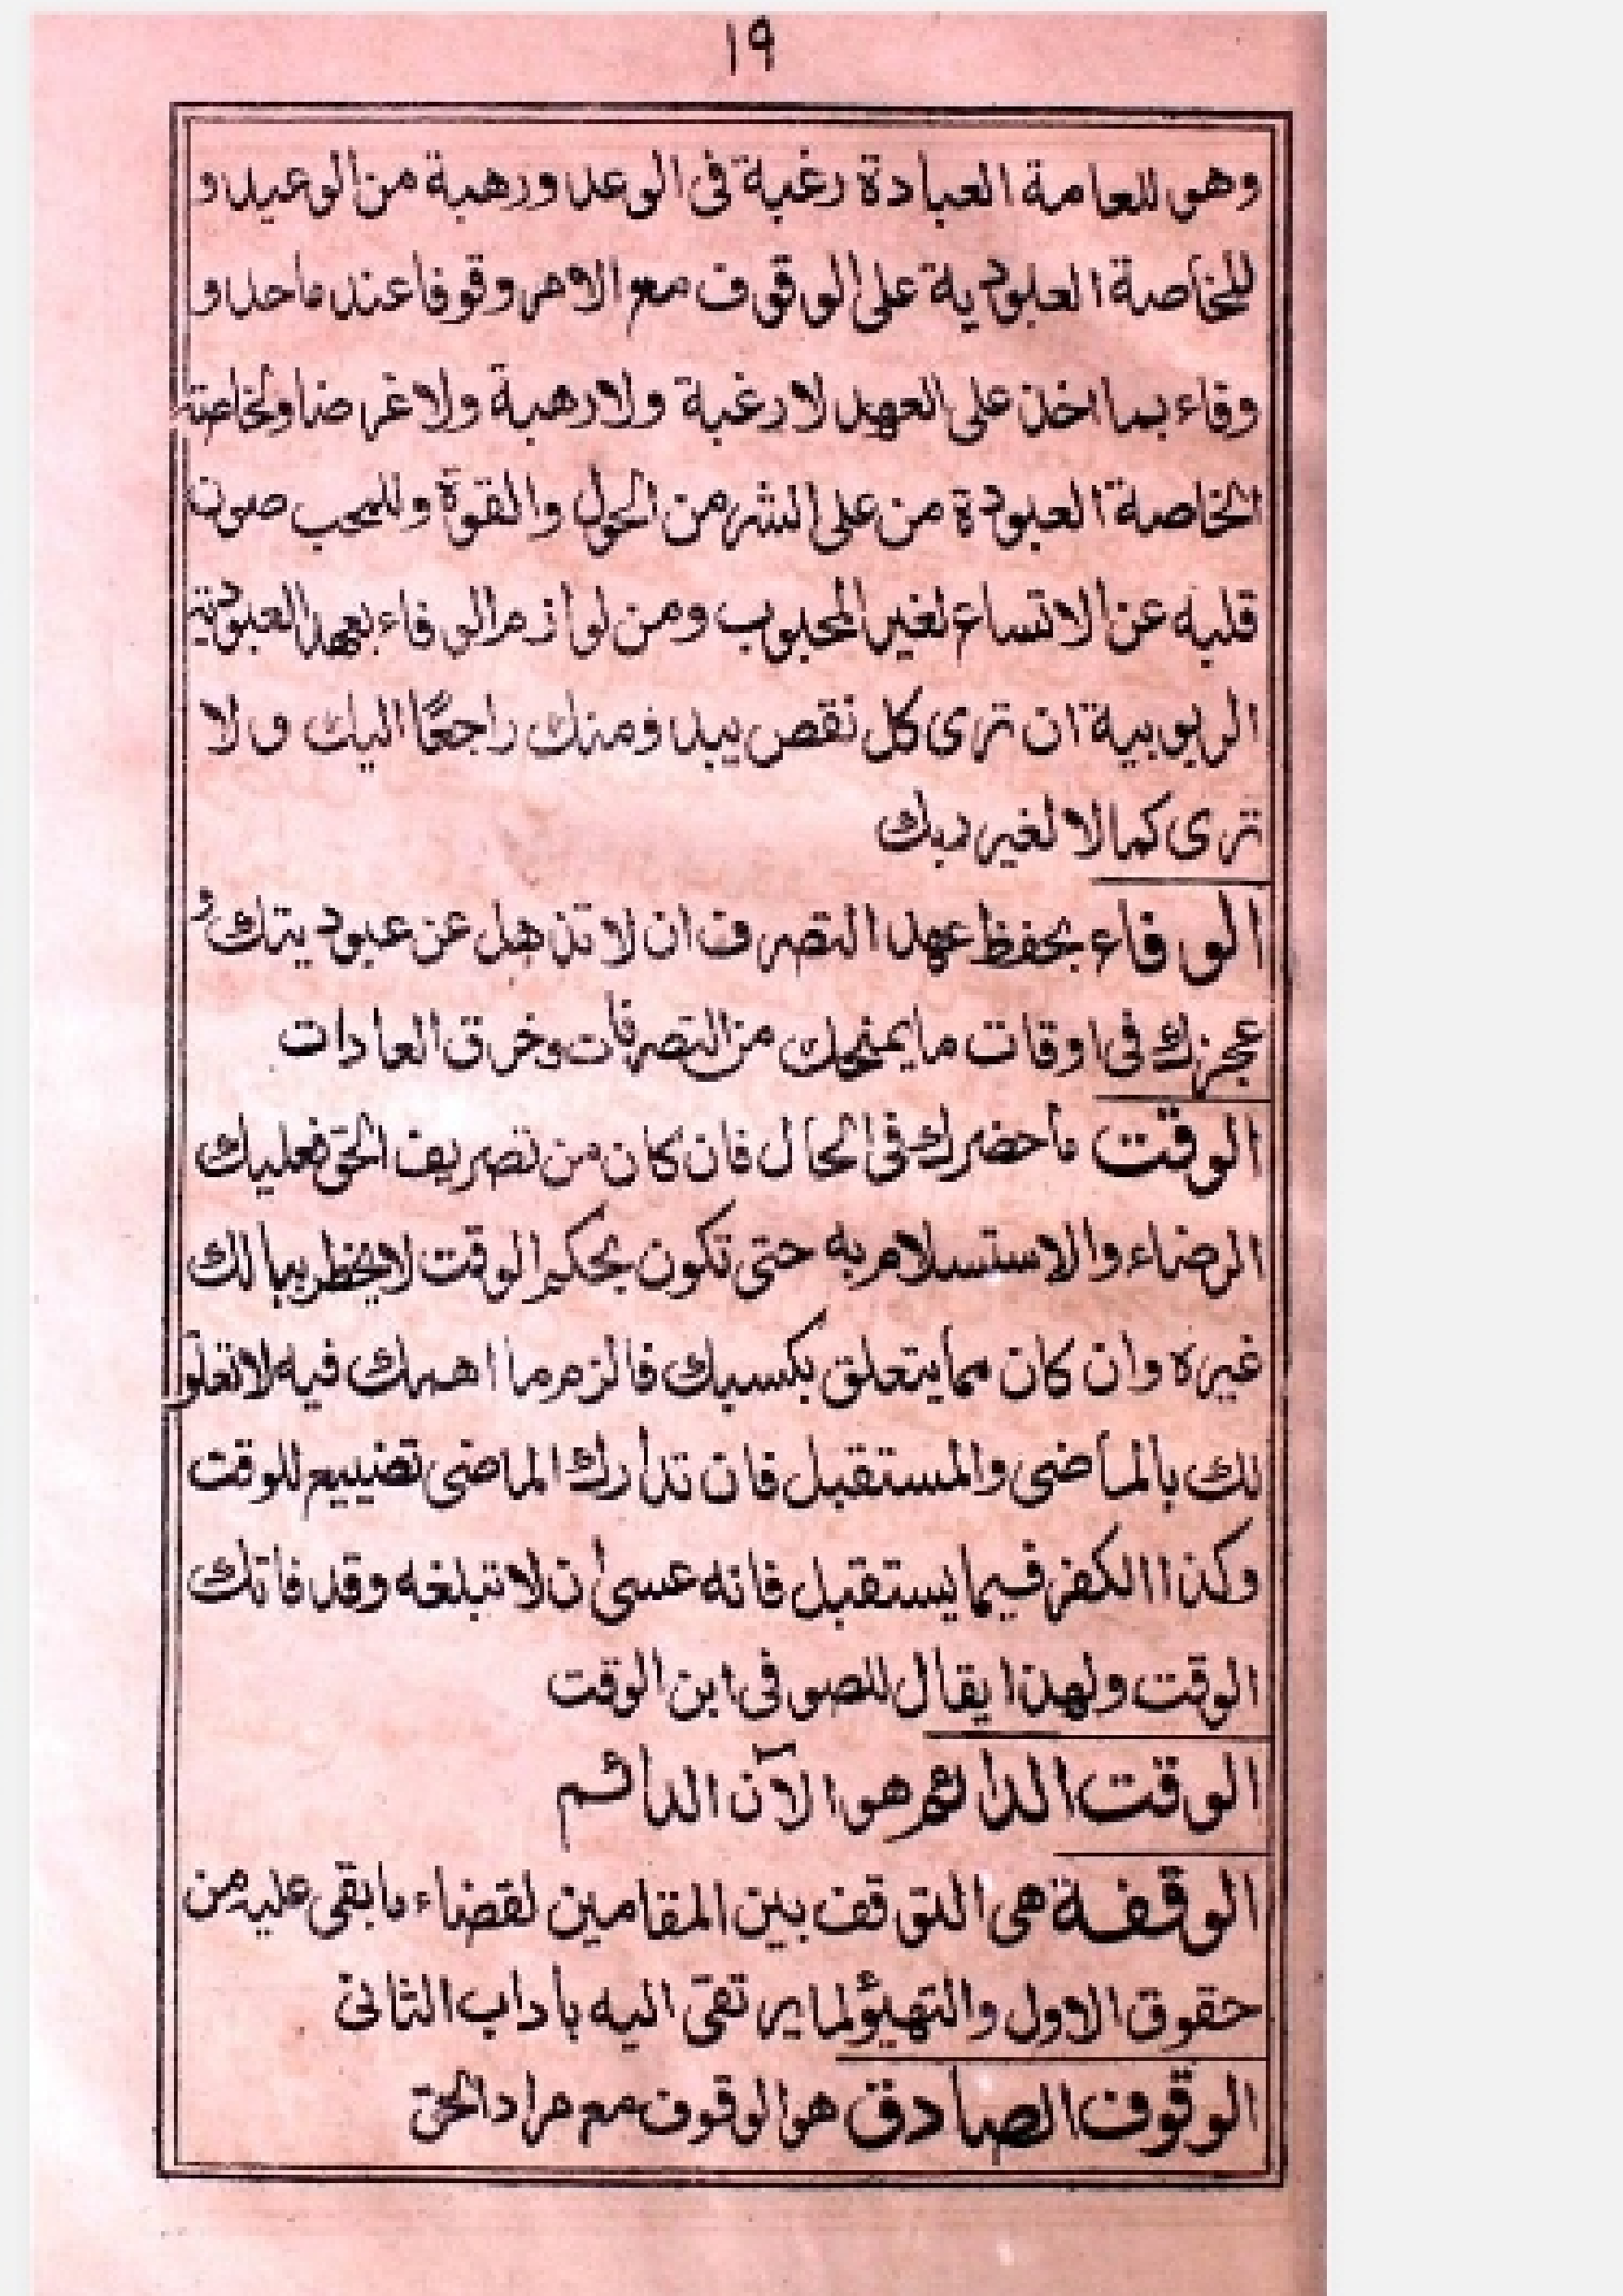 ١٩
وهو للعامة العبادة رغبة فى الوعد ورهبة من الوعيد و
للخاصة العبودية على الوقوف مع الامر وقوفا عند ماحد و
وفاء بما اخذ على العهد لا رغبة ولا رهبة ولا غرضا ولخاصة
الخاصة العبودة من على الشر من الحول والقوة وللمحب صون
قلبه عن الاتساع لغير المحبوب ومن لوازم الوفاء بعهد العبودية
الربوبية ان ترى كل نقص يبدو منك راجعًا اليك ولا
ترى كمالا لغير ربك
الوفاء بحفظ عهد التصرف ان لا تذهل عن عبوديتك و
عجزك فى اوقات ما يمنحك من التصرفات وخرق العادات
الوقت ما حضرك فى الحال فان كان من تصريف الحق فعليك
الرضاء والاستسلام به حتى تكون بحكم الوقت لا يخطر ببالك
غيره وان كان مما يتعلق بكسبك فالزم ما اهمك فيه لا تعلق
لك بالماضى والمستقبل فان تدارك الماضى تضييع للوقت
وكذا الكفر فيما يستقبل فانه عسىٰ ان لا تبلغه وقد فاتك
الوقت ولهذا يقال للصوفى ابن الوقت
الوقت الدائم هو الآن الدائم
الوقفة هى التوقف بين المقامين لقضاء ما بقى عليه من
حقوق الاول والتهيؤ لما يرتقى اليه بأداب الثانى
الوقوف الصادق هو الوقوف مع مراد الحق